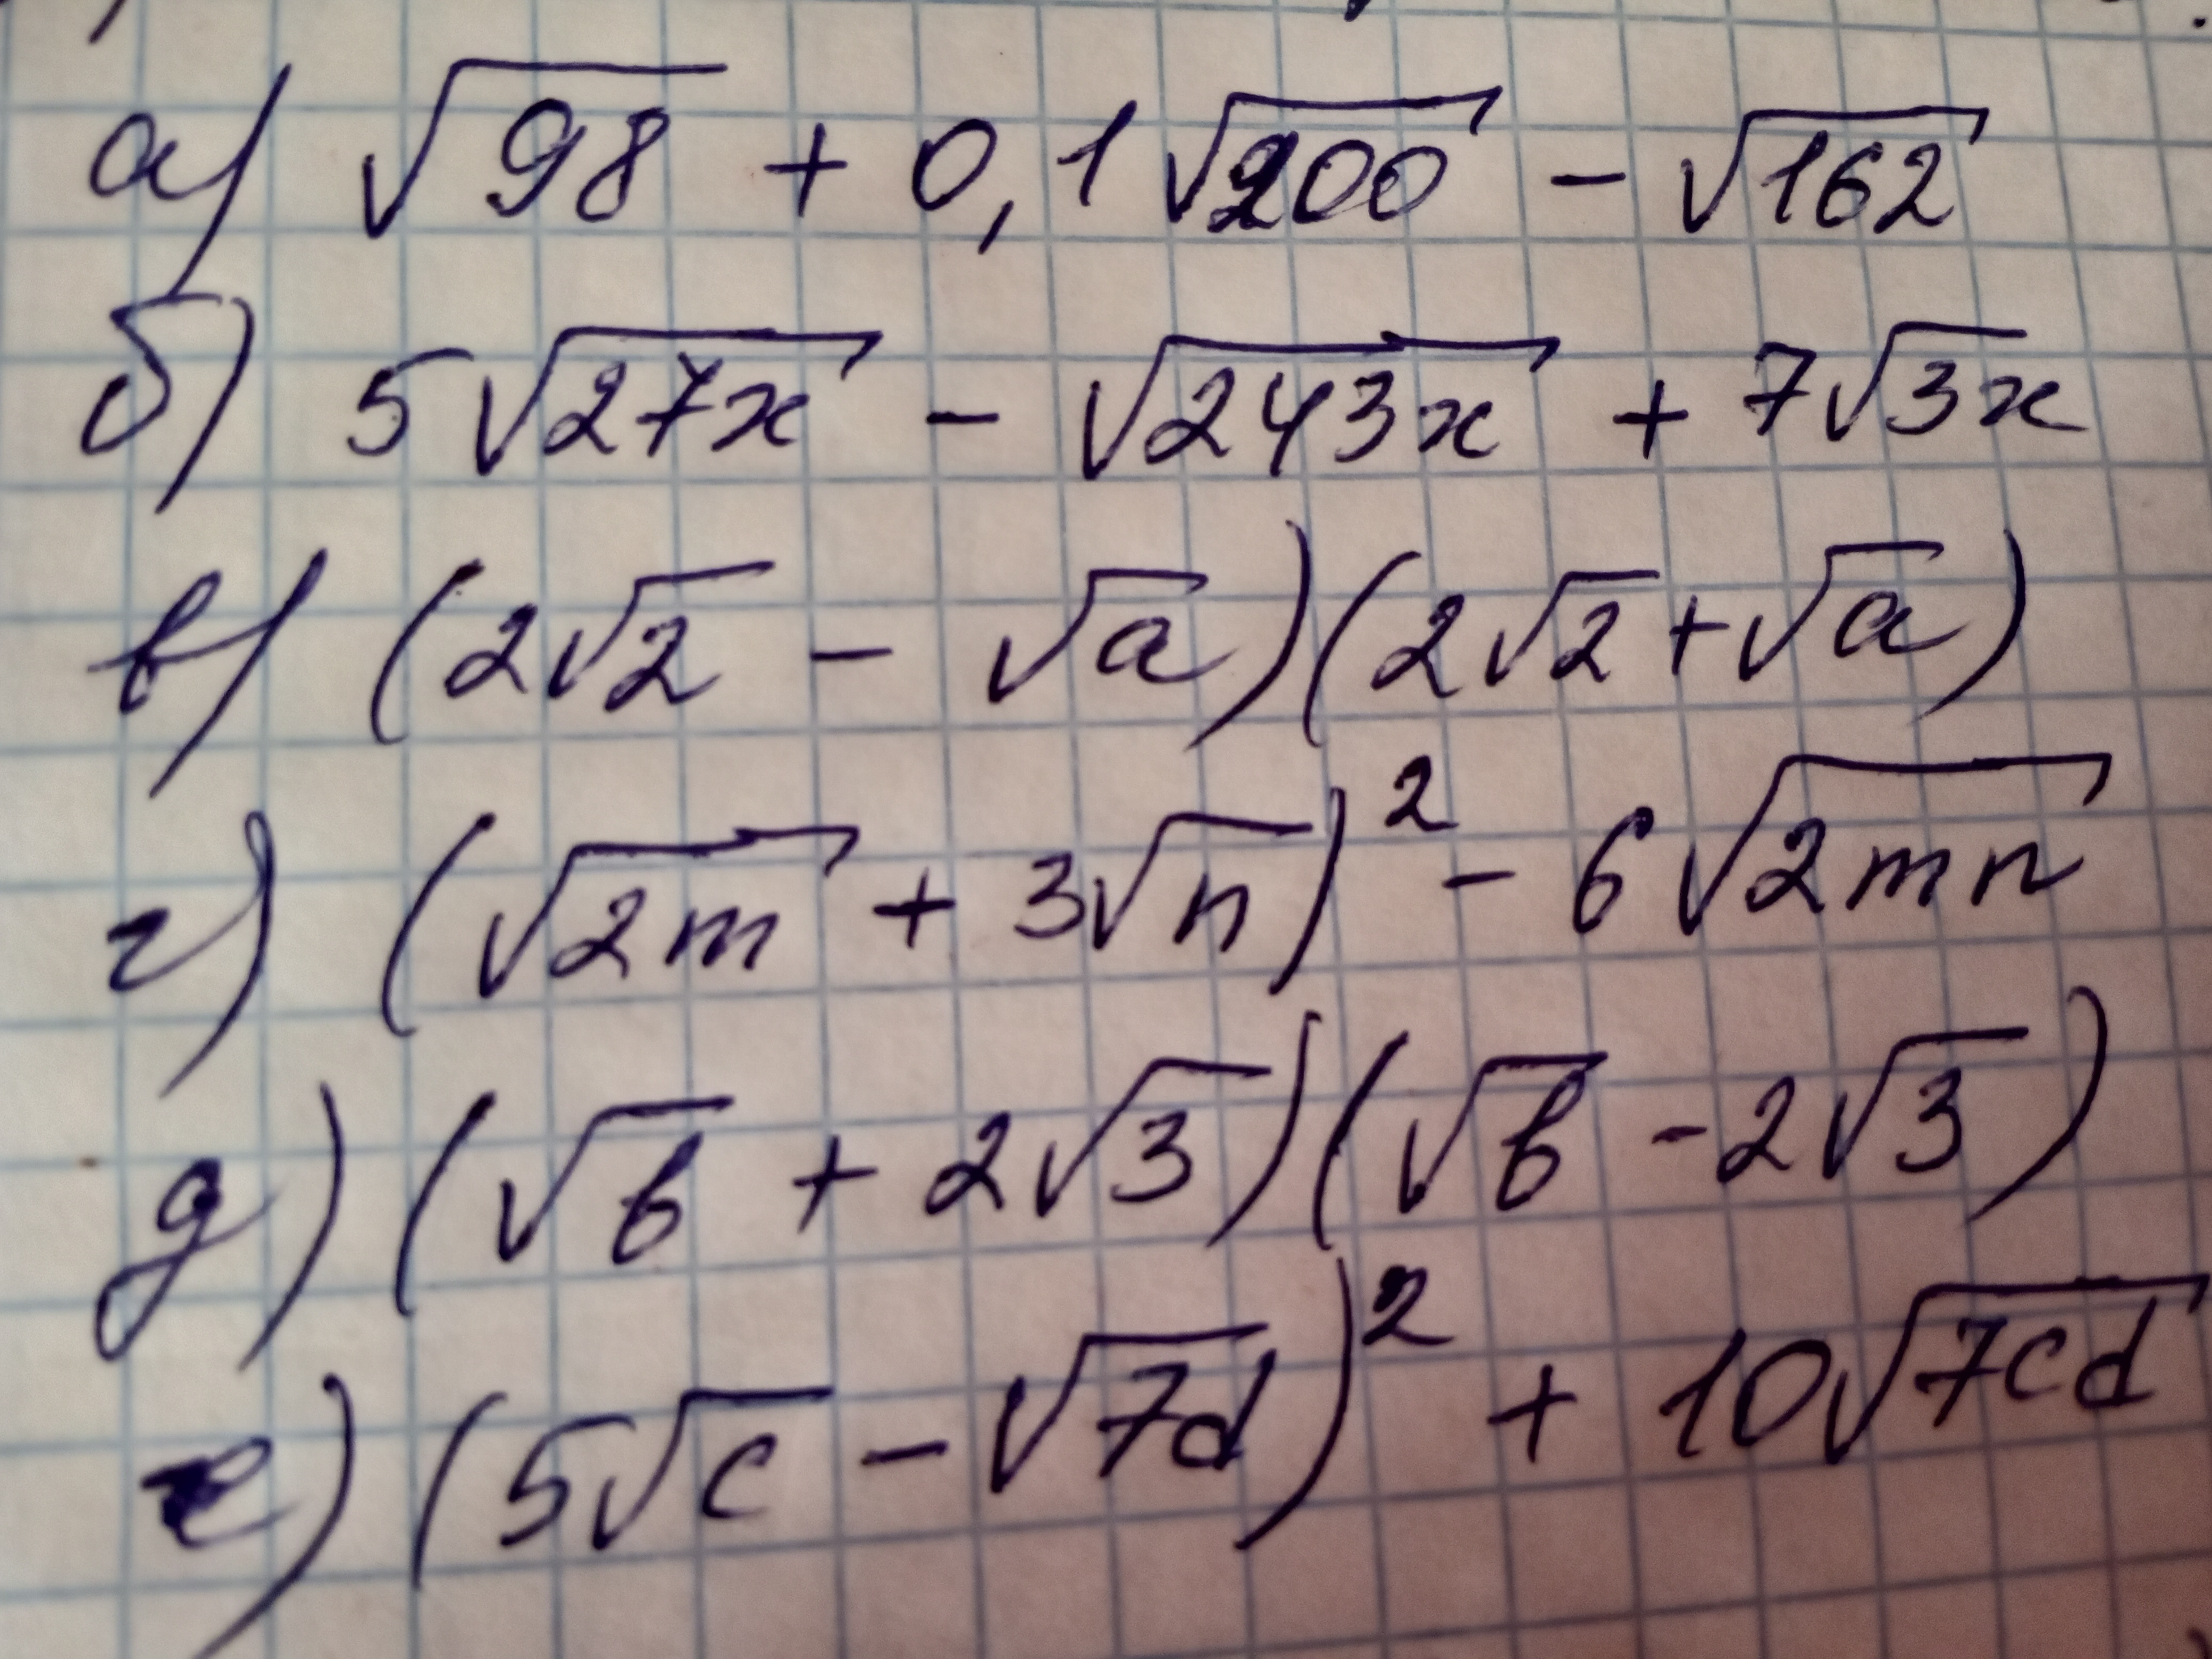 а) √98 + 0,1√200 - √162
б) 5√27x - √243x + 7√3x
в) (2√2 - √a)(2√2 + √a)
г) (√2m + 3√n)² - 6√2mn
д) (√b + 2√3)(√b - 2√3)
е) (5√c - √7d)² + 10√7cd